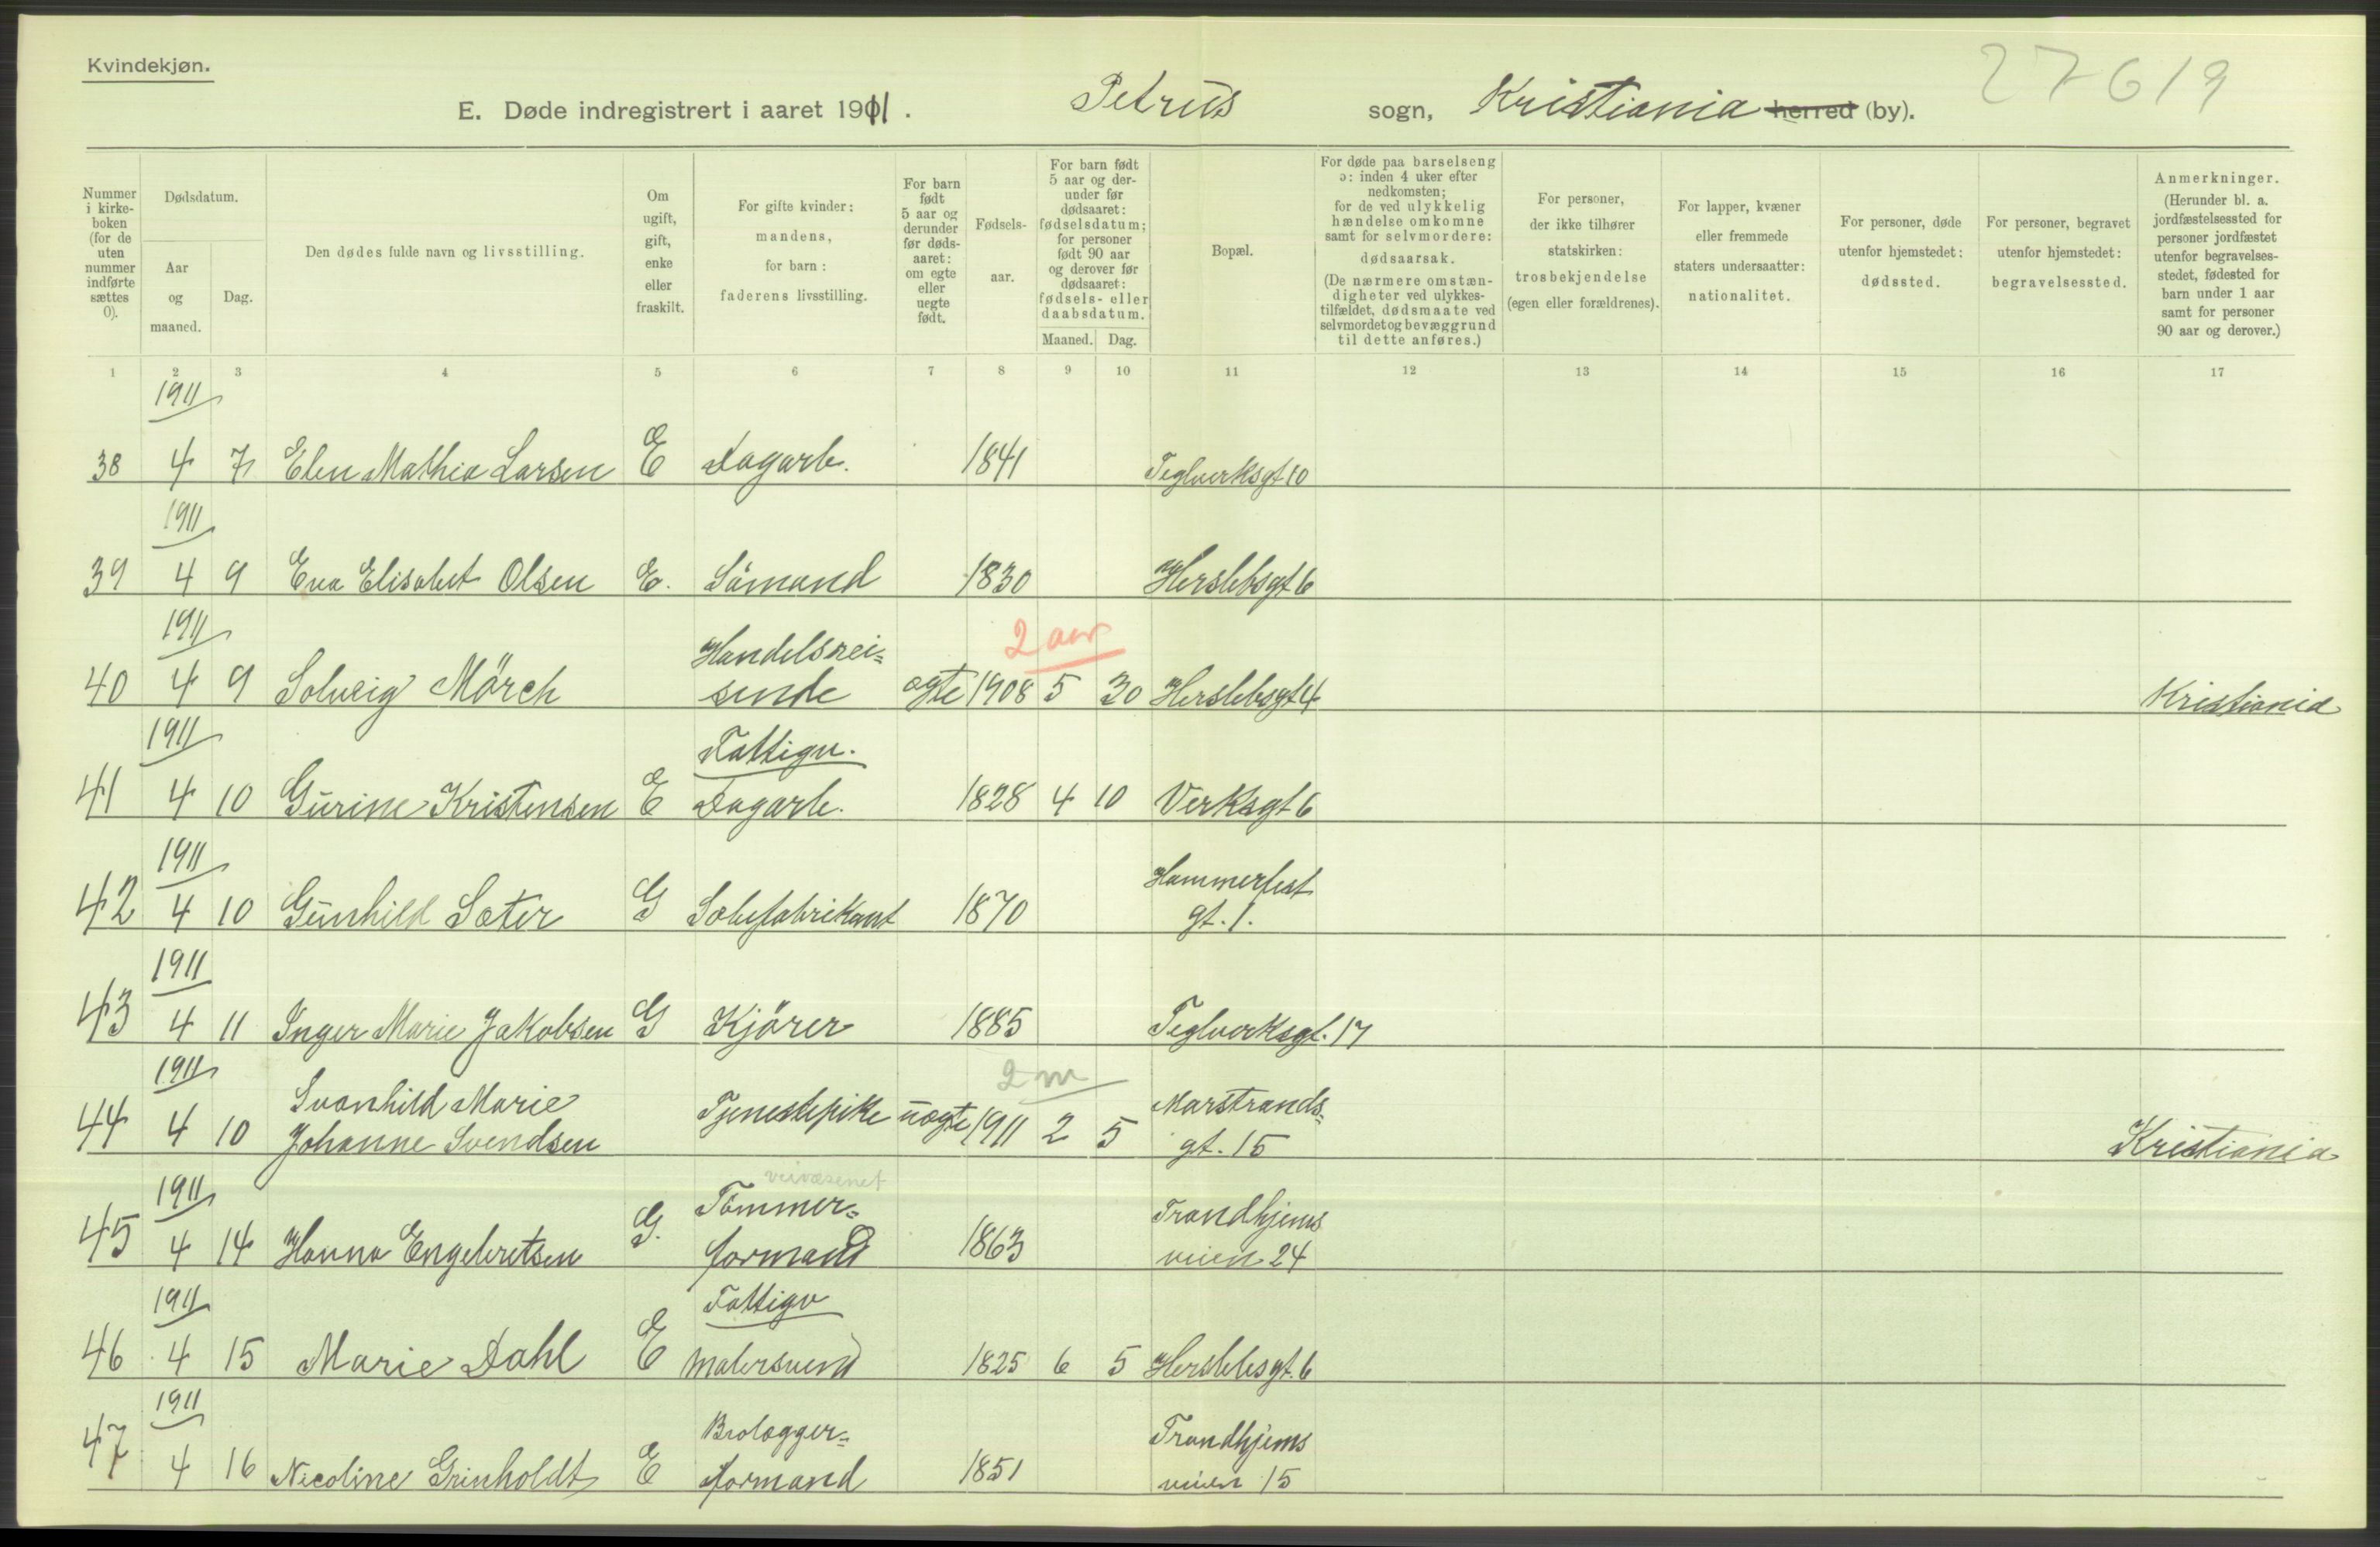 Kvindekjøn.
27619
E. Døde indregistrert i aaret 1911. Petrus sogn, Kristiania herred (by).
Nummer i kirkeboken (for de uten nummer indførte sættes 0).
Dødsdatum.
Aar og maaned.
Dag.
Den dødes fulde navn og livsstilling.
Om ugift, gift, enke eller fraskilt.
For gifte kvinder: mandens, for barn: faderens livsstilling.
For barn født 5 aar og derunder før dødsaaret: om egte eller uegte født.
Fødselsaar.
For barn født 5 aar og derunder før dødsaaret: fødselsdatum; for personer født 90 aar og derover før dødsaaret: fødsels- eller daabsdatum.
Maaned. Dag.
Bopæl.
For døde paa barselseng ɔ: inden 4 uker efter nedkomsten; for de ved ulykkelig hændelse omkomne samt for selvmordere: dødsaarsak. (De nærmere omstændigheter ved ulykkestilfældet, dødsmaate ved selvmordet og bevæggrund til dette anføres.)
For personer, der ikke tilhører statskirken: trosbekjendelse (egen eller forældrenes).
For lapper, kvæner eller fremmede staters undersaatter: nationalitet.
For personer, døde utenfor hjemstedet: dødssted.
For personer, begravet utenfor hjemstedet: begravelsessted.
Anmerkninger. (Herunder bl. a. jordfæstelsessted for personer jordfæstet utenfor begravelsesstedet, fødested for barn under 1 aar samt for personer 90 aar og derover.)
1 2 3 4 5 6 7 8 9 10 11 12 13 14 15 16 17
1911
38 4 7 Elen Mathia Larsen E Dagarb. 1841 Teglverksgt 10
1911
39 4 9 Eva Elisabet Olsen E. Sömand 1830 Herslebsgt 6
1911 Handelsrei= 2 aar
40 4 9 Solveig Mörch sende egte 1908 5 30 Herslebsgt 4 Kristiania
1911 Fattigv.
41 4 10 Gurine Kristensen E Dagarb. 1828 4 10 Verksgt 6
1911 Hammerfest
42 4 10 Gunhild Sæter G Sæbefabrikant 1870 gt. 1.
1911
43 4 11 Inger Marie Jakobsen G Kjörer 1885 Teglverksgt. 17
1911 Svanhild Marie 2 m Marstrands=
44 4 10 Johanne Svendsen Tjenestepike uegte 1911 2 5 gt. 15 Kristiania
veivæsenet
1911 Tömmer= Trondhjems
45 4 14 Hanna Engebretsen G. formand 1863 veien 24
1911 Fattigv
46 4 15 Marie Dahl E Malersvend 1825 6 5 Herslebsgt. 6
1911 Brolægger= Trondhjems
47 4 16 Nicoline Grinholdt E formand 1851 veien 15